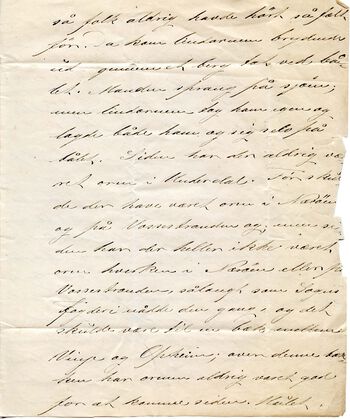 så folk aldrig havde hört så fælt
för. Da kom lindormen brydende
ud gennem et berg tæt ved bå-
tet. Manden sprang på sjöen;
men lindormen tog ham igen og
lagde både ham og sig selv på
båtet. Siden har der aldrig væ-
ret orm i Underdal. För skul-
de der have været orm i Næröen
og på Vossestranden og, men si-
den har der heller ikke været
orm hverken i Næröen eller på
Vossestranden, sålangt som Sogns
fogderi nådde den gang, og det
skulde være til en bæk mellem
Vinje og Opheim; over denne bæk-
ken har ormen aldrig været god
for at komme siden.